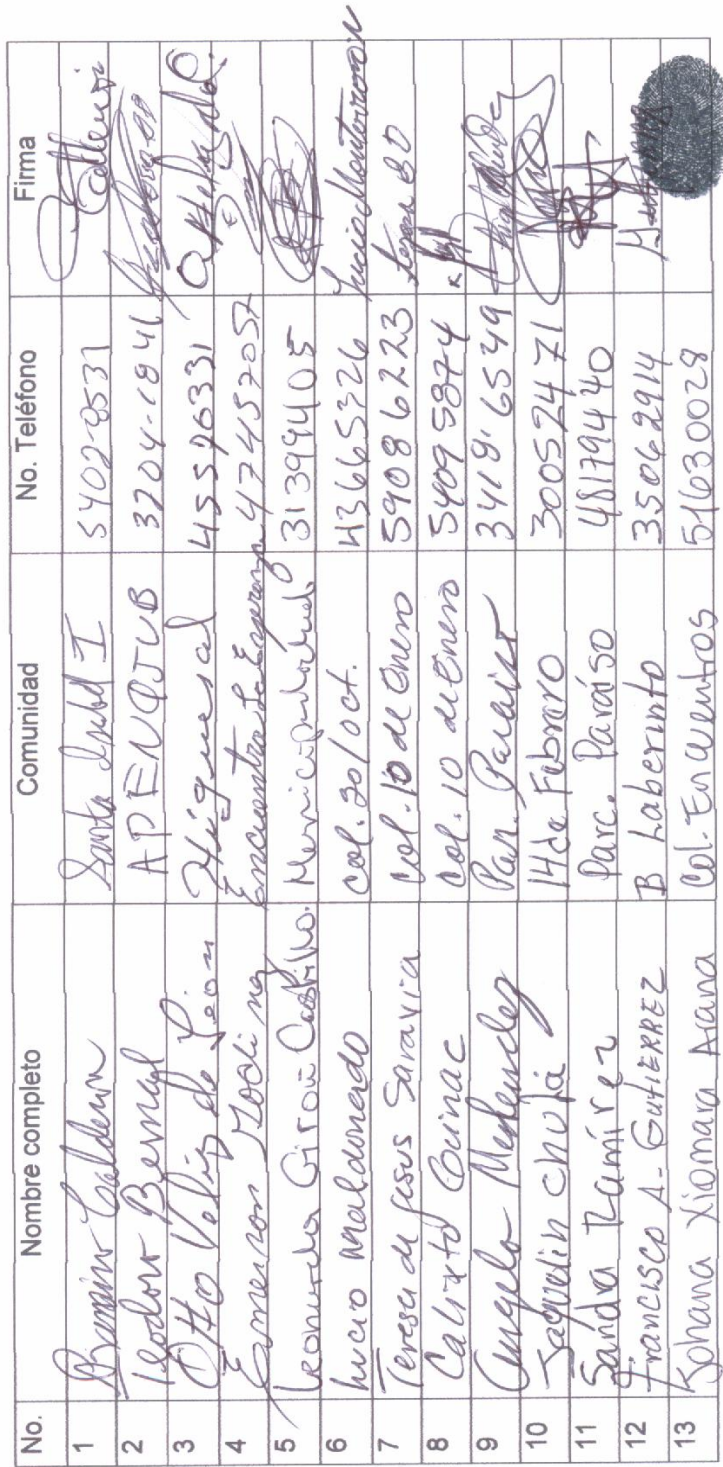 No. Nombre completo Comunidad No. Teléfono Firma
1 Calderon Santa Isabel I 5402-8531
2 Teodoro Bernal APENQJUB 3204-1841
3 Otto Veliz de León Higueral 45596331
4 Emerson Encuentro La Esperanza 47457057
5 Leonarda Giron Castillo. 31399405
6 Lucio Maldonado col. 30/oct. 43665326
7 Teresa de Jesus Saravia col. 10 de Enero 59086223
8 Calixto Quinac col. 10 de Enero 54095874
9 Angela Melendez Par. Paraiso 3419 6549
10 Jaquelin Chujá 14 de Febrero 30052471
11 Sandra Ramírez Parc. Paraíso 48179440
12 Francisco A. GutiERREZ B Laberinto 35062914
13 Johana Xiomara Arana Col. Encuentros 51630028